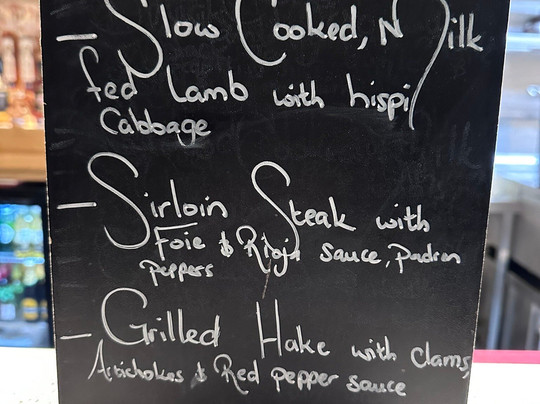 - Slow Cooked, N Milk
fed Lamb with hispi
Cabbage
- Sirloin Steak with
Foie & Rioja sauce, padron
peppers
- Grilled Hake with clams,
Artichokes & Red pepper sauce